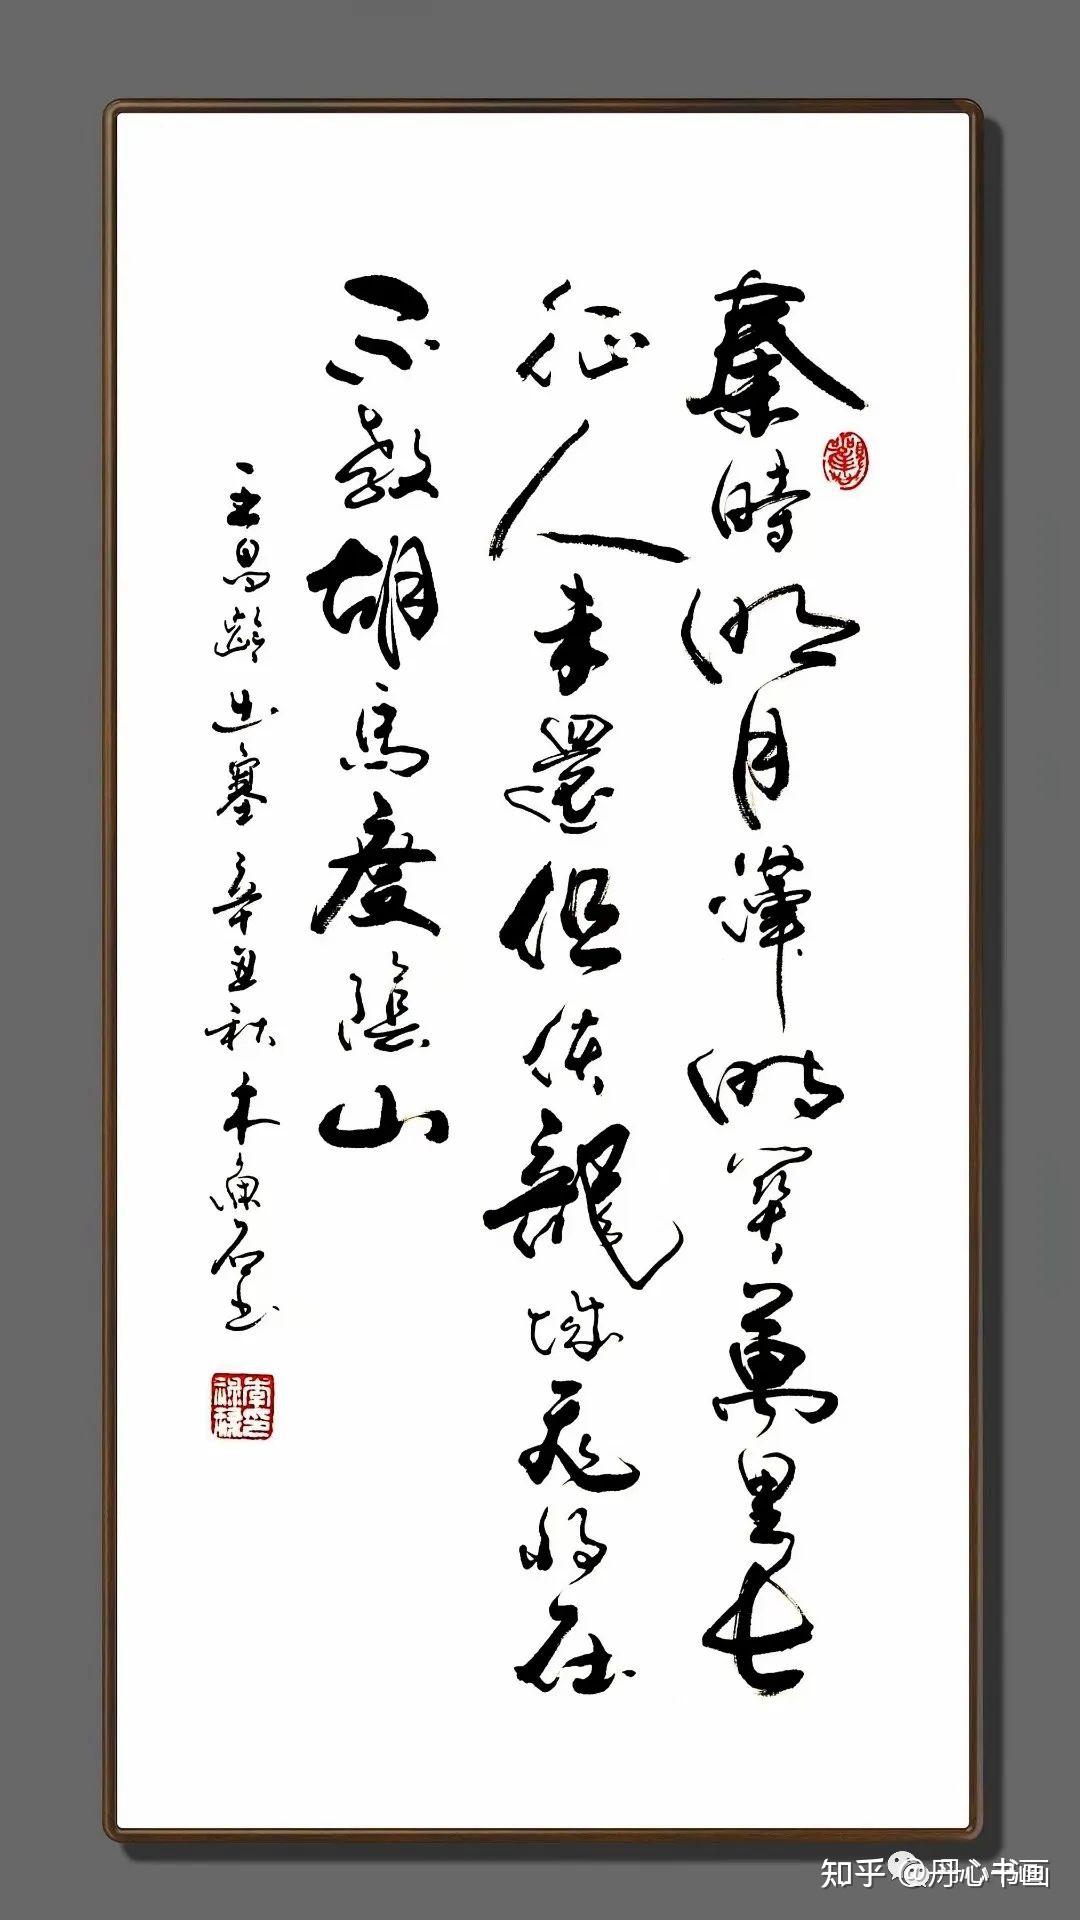 秦時明月漢時關萬里長
征人未還但使龍城飛將在
不教胡馬度陰山
王昌齡出塞辛丑秋木漁石书
知乎 @丹心书画